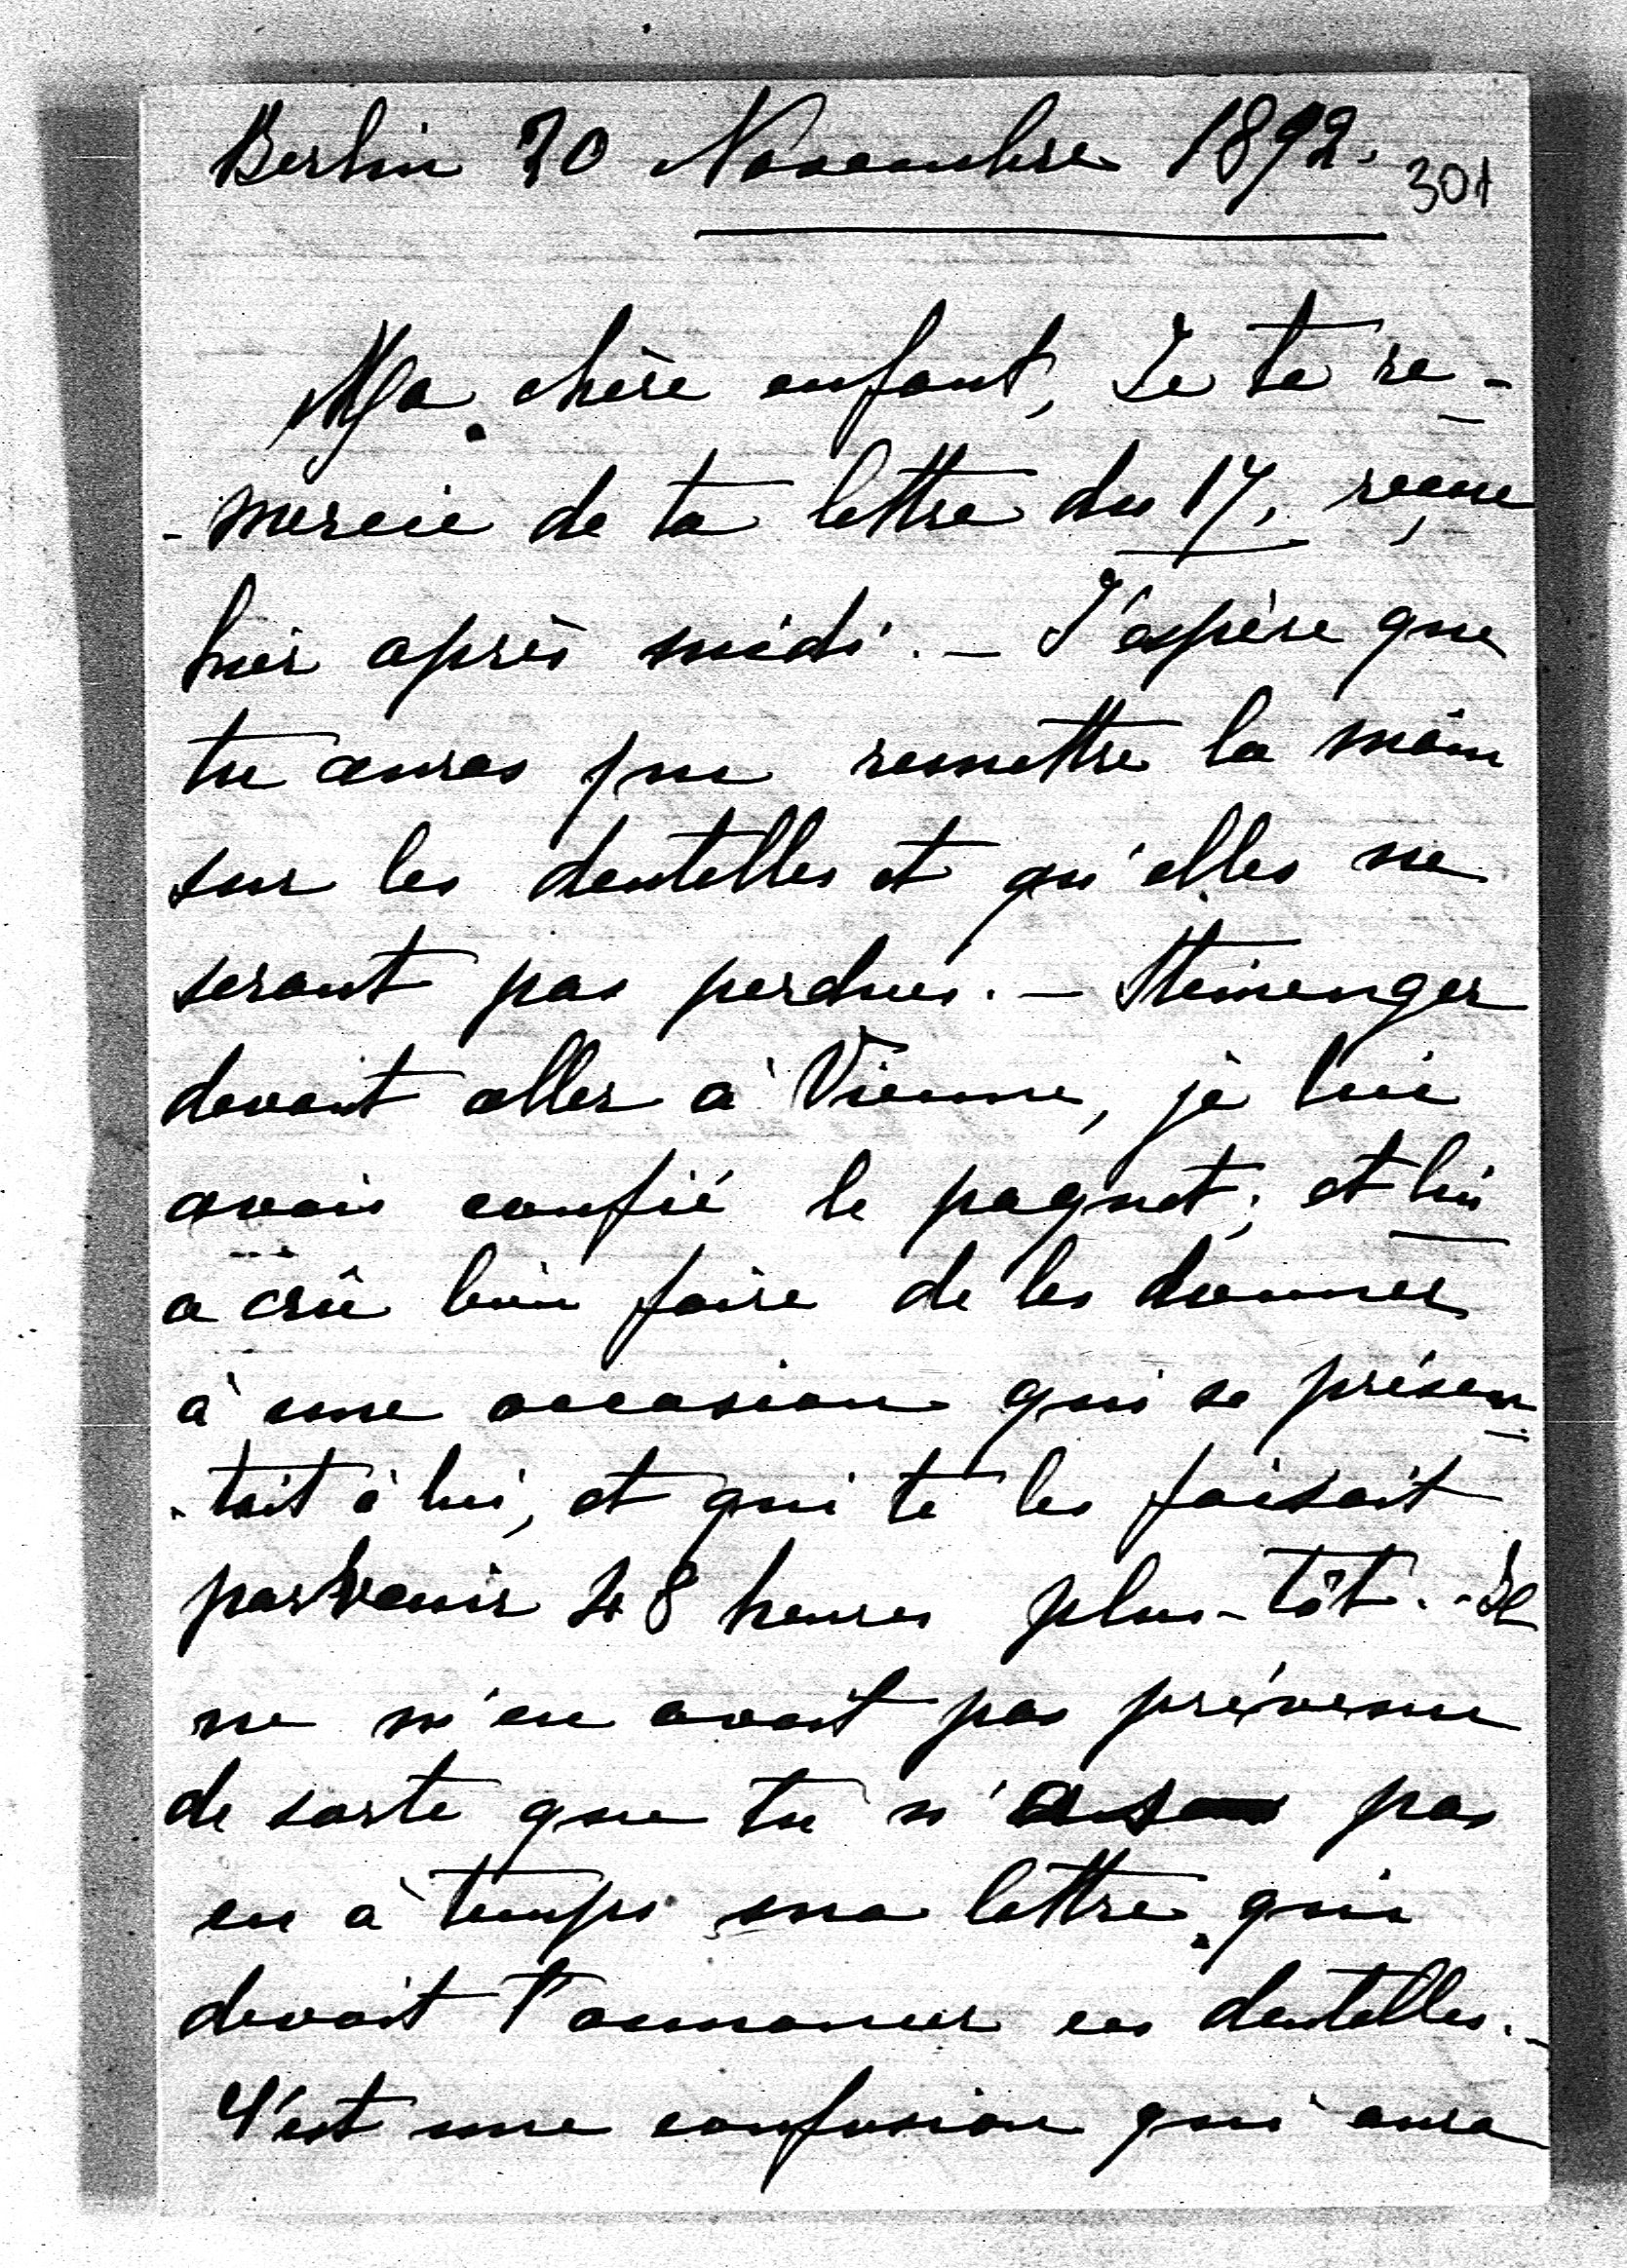 Berlin 20 Novembre 1892.
301
Ma chère enfant, Je te re-
-mercie de ta lettre du 17, reçue
hier après midi. - J'espère que
tu auras pu remettre la main
sur les dentelles et qu'elles ne
seront pas perdues. - Steinenger
devant aller à Vienne, je lui
avais confié le paquet; et lui
a crû bien faire de les donner
à une occasion qui se présen-
-tait à lui, et qui te les faisait
parvenir 48 heures plus-tôt. - Il
ne m'en avait pas prévenu
de sorte que tu n'as pas
eu à temps ma lettre qui
devait t'annoncer ces dentelles. -
C'est une confusion qui aura